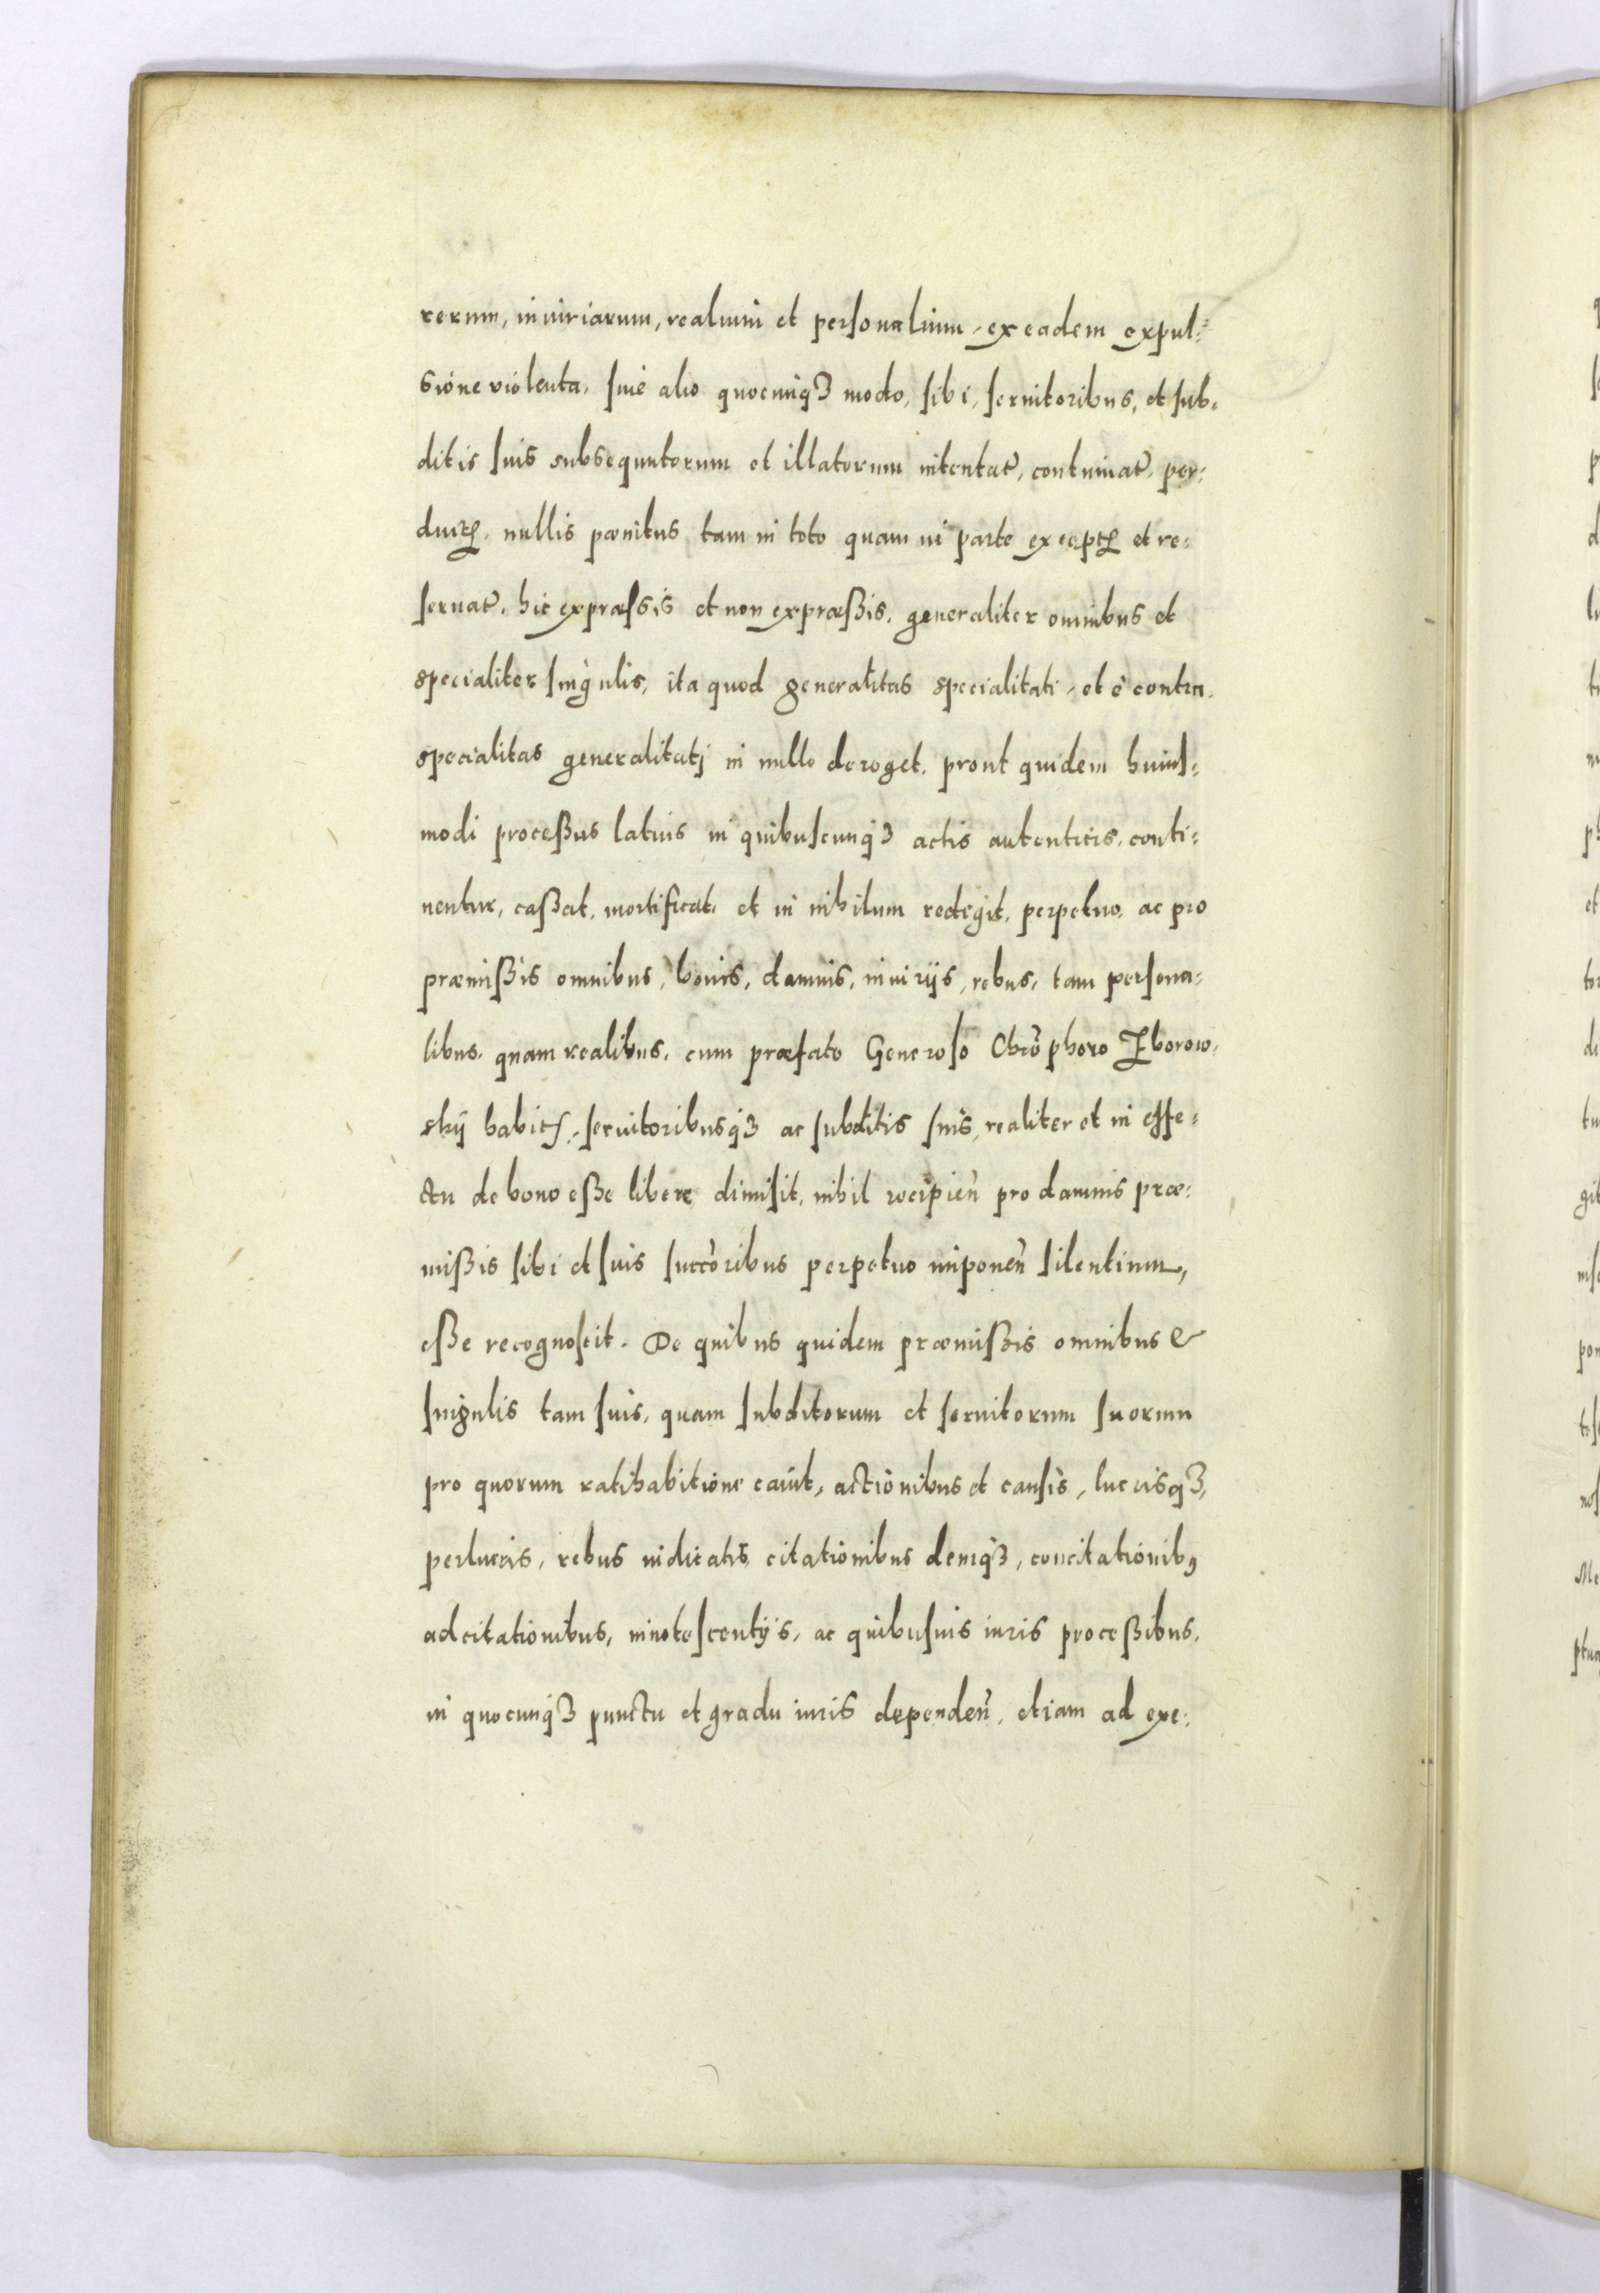 rerum, iniuriarum, realium et personalium, ex eadem expul-
sione violenta, siue alio quocunqꝫ modo, sibi, seruitoribus, et sub-
ditis suis subsequutorum et illatorum intentat̃, continuat̃, per-
duct̃, nullis pœnitus tam in toto quam in parte except̃ et re-
seruat̃, hic expræssis et non expræßis, generaliter omnibus et
specialiter singulis, ita quod generalitas specialitati, et è contra
specialitas generalitatj in nullo deroget, prout quidem huius-
modi proceßus latius in quibuscunqꝫ actis autenticis, conti-
nentur, caßat, mortificat, et in nihilum redegit, perpetuo, ac pro
præmißis omnibus, bonis, damnis, iniurijs, rebus, tam persona-
libus, quam realibus, cum præfato Generoso Chrõphoro Zborow-
skij habit̃, seruitoribusqꝫ ac subditis suis, realiter et in effe-
ctu de bono eße libere dimisit, nihil recipieñ pro damnis præ-
mißis sibi et suis succõribus perpetuo imponeñ silentium,
eße recognoscit. De quibus quidem præmißis omnibus &
singulis tam suis, quam subditorum et seruitorum suorum
pro quorum ratihabitione cauit, actionibus et causis, lucrisqꝫ,
perlucris, rebus iudicatis, citationibus deniqꝫ, concitationibꝰ
adcitationibus, innotescentijs, ac quibusuis iuris proceßibus,
in quocunqꝫ punctu et gradu iuris dependeñ, etiam ad exe-